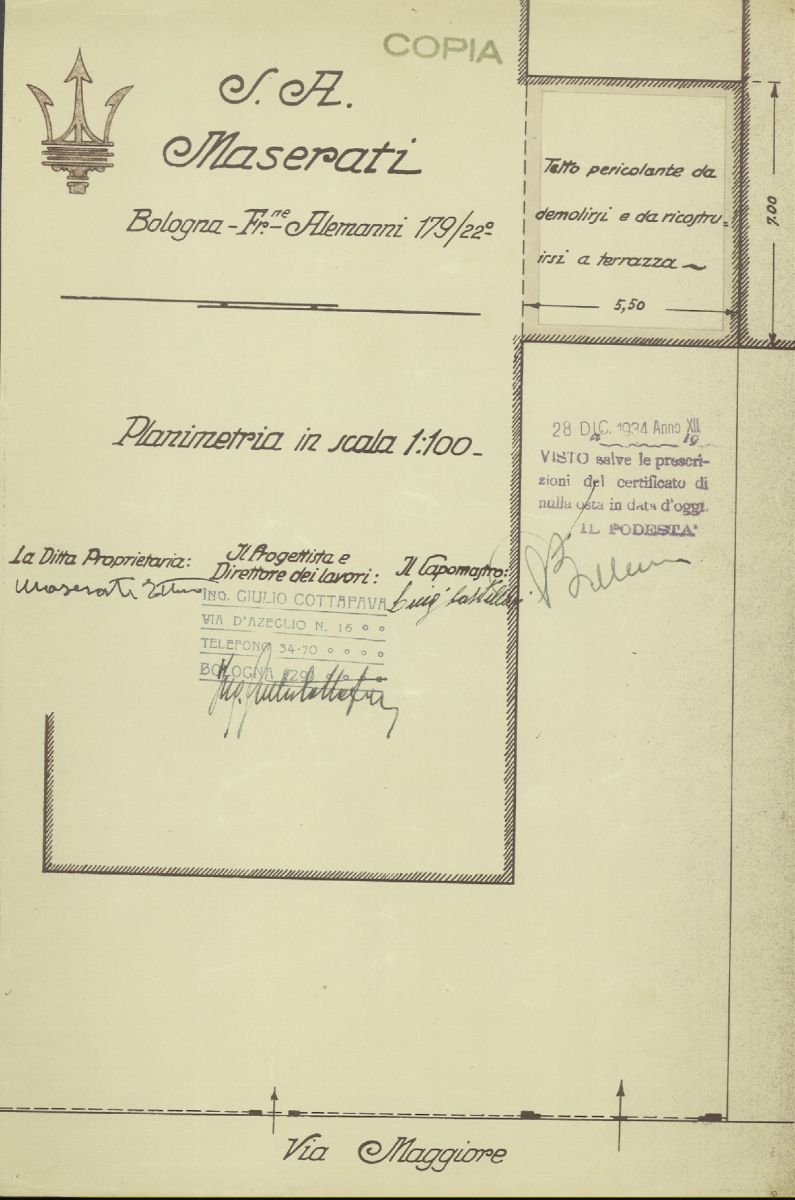 COPIA
S. A.
Maserati
Bologna - Fr.ne - Alemanni 179/22º
Tetto pericolante da
demolirsi e da ricostru=
irsi a terrazza
5,50
7.00
Planimetria in scala 1:100 -
28 DIC. 1934 Anno XII
19
VISTO salve le prescri-
zioni del certificato di
nulla osta in data d'oggi.
IL PODESTA'
La Ditta Proprietaria:
Maserati Ettore
Il Progettista e
Direttore dei lavori:
ING. GIULIO COTTAFAVA
VIA D'AZEGLIO N. 16
TELEFONO 34-70
BOLOGNA
Ing. Giulio Cottafava
Il Capomastro:
Luigi
Via Maggiore